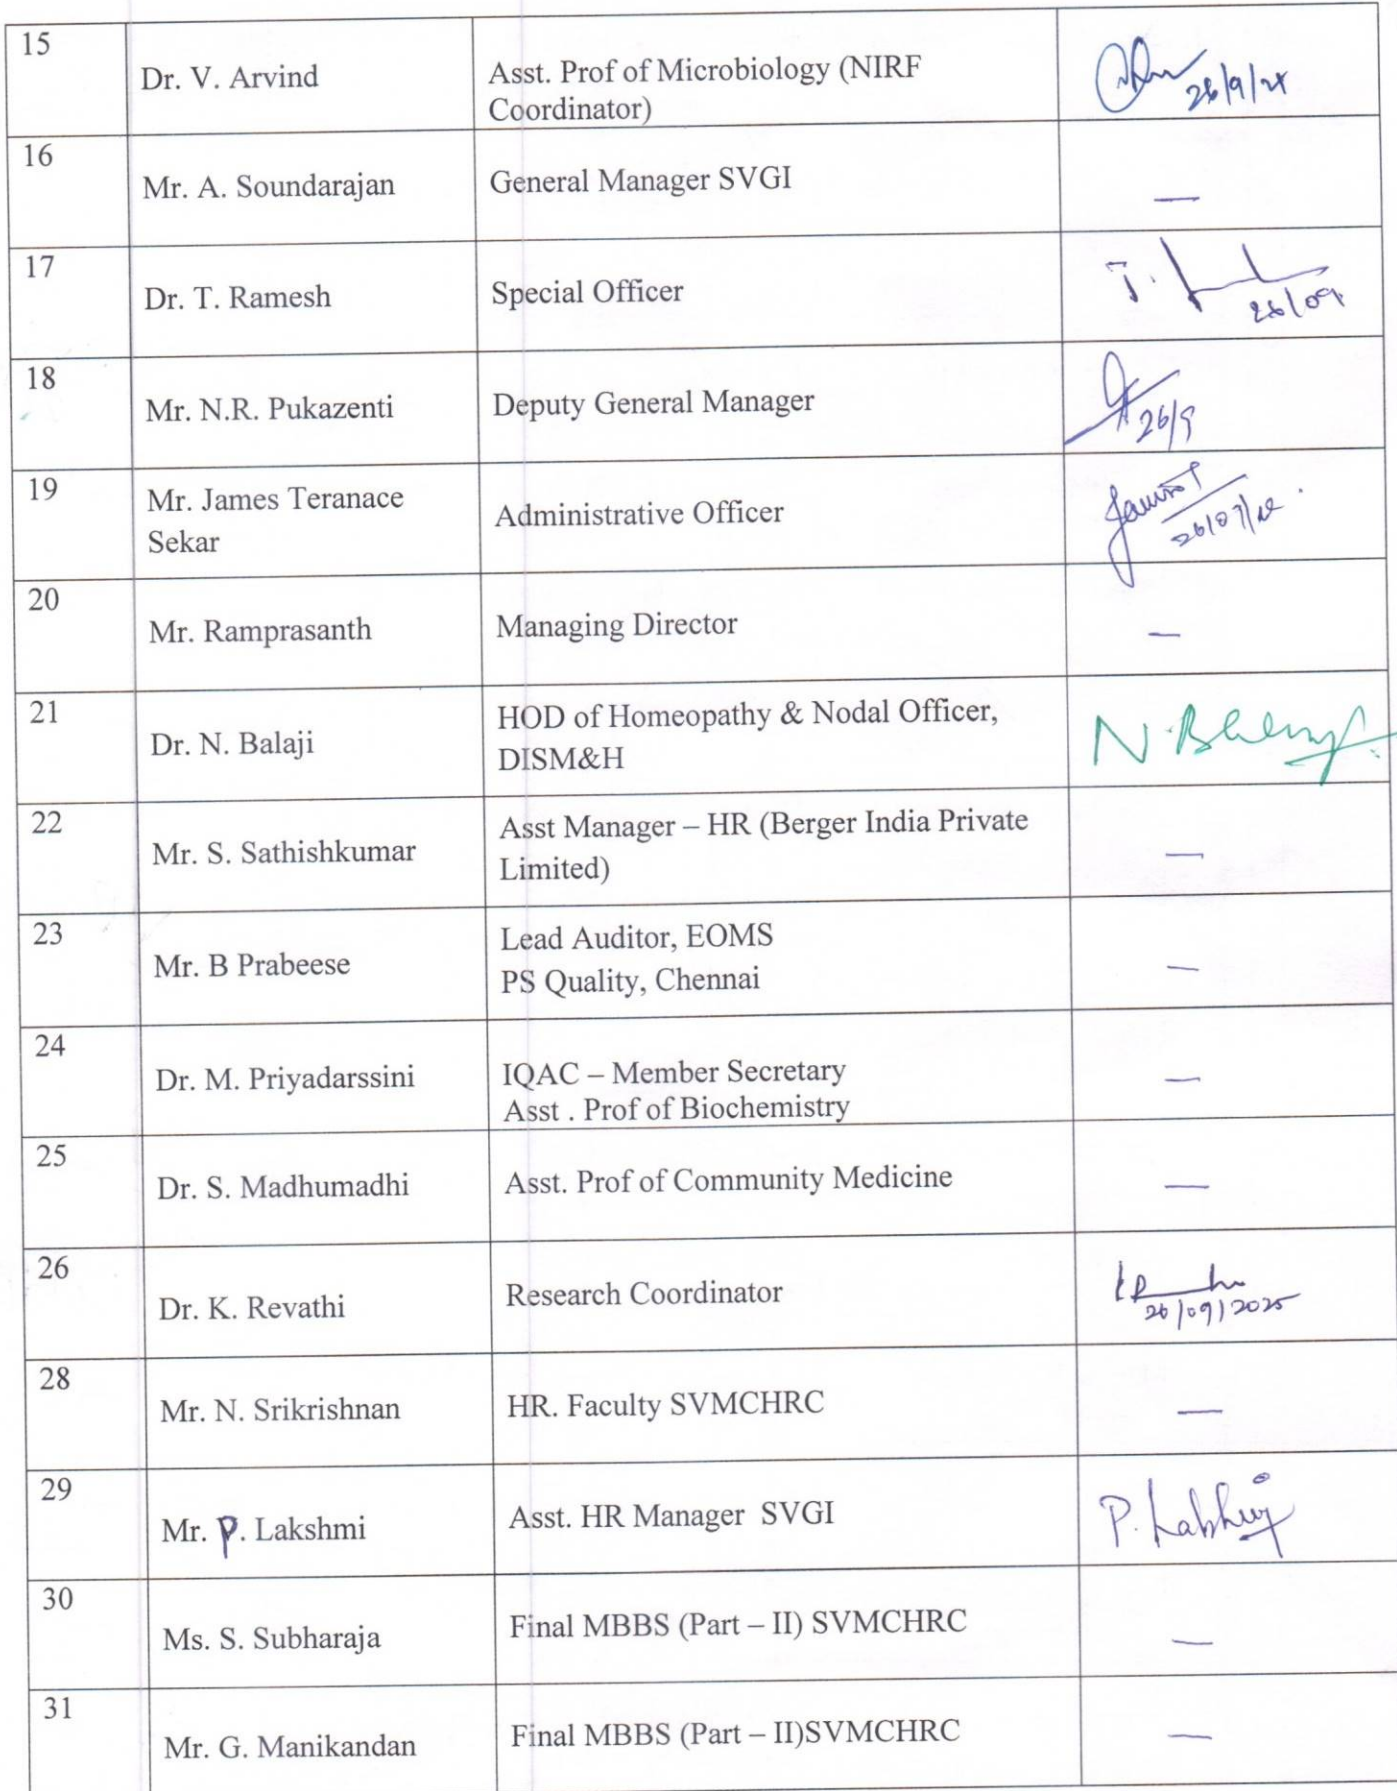 15
Dr. V. Arvind
Asst. Prof of Microbiology (NIRF
Coordinator)
16
Mr. A. Soundarajan
General Manager SVGI
—
17
Dr. T. Ramesh
Special Officer
T.
18
Mr. N.R. Pukazenti
Deputy General Manager
26/9
19
Mr. James Teranace
Sekar
Administrative Officer
20
Mr. Ramprasanth
Managing Director
—
21
Dr. N. Balaji
HOD of Homeopathy & Nodal Officer,
DISM&H
N.
22
Mr. S. Sathishkumar
Asst Manager – HR (Berger India Private
Limited)
—
23
Mr. B Prabeese
Lead Auditor, EOMS
PS Quality, Chennai
—
24
Dr. M. Priyadarssini
IQAC – Member Secretary
Asst . Prof of Biochemistry
—
25
Dr. S. Madhumadhi
Asst. Prof of Community Medicine
—
26
Dr. K. Revathi
Research Coordinator
26/09/2025
28
Mr. N. Srikrishnan
HR. Faculty SVMCHRC
—
29
Mr. P. Lakshmi
Asst. HR Manager SVGI
P.
30
Ms. S. Subharaja
Final MBBS (Part – II) SVMCHRC
—
31
Mr. G. Manikandan
Final MBBS (Part – II)SVMCHRC
—